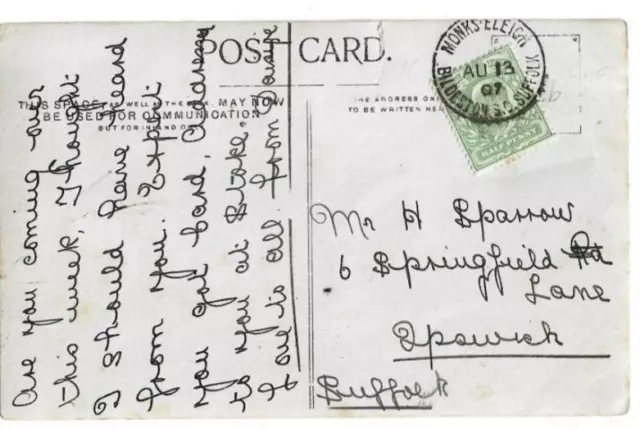 POST CARD.
THIS SPACE, AS WELL AS THE BACK, MAY NOW
BE USED FOR COMMUNICATION
BUT FOR INLAND ONLY
THE ADDRESS ONLY
TO BE WRITTEN HERE
MONKS-ELEIGH
AU 13
07
BILDESTON S.O. SUFFOLK
HALFPENNY
Are you coming our
this week, I thought
I should have heard
from you. Expect
you got card, Address
to you at Stoke.
Love is all from Daisie
Mr H Sparrow
6 Springfield Rd
Lane
Ipswich
Suffolk